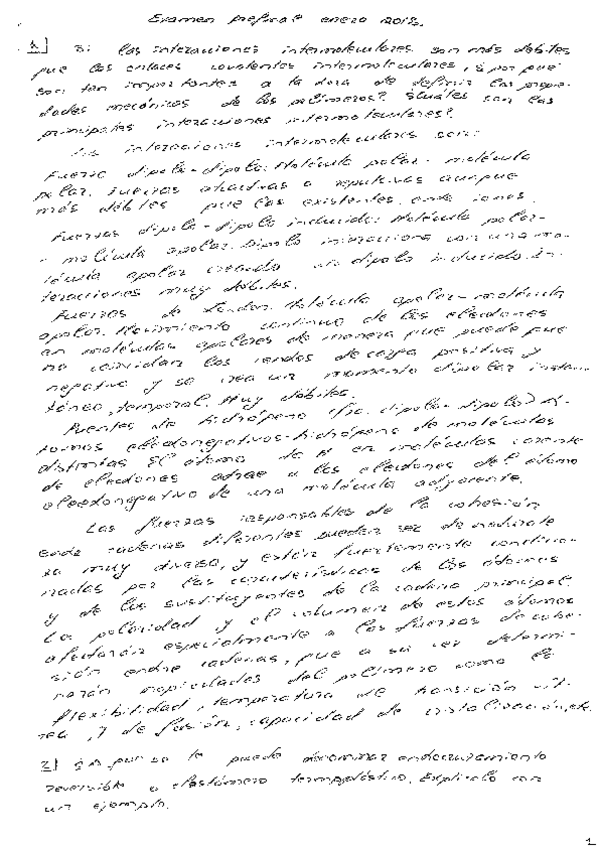 Examen prefinal enero 2018.
1) Si las interacciones intermoleculares son más débiles
que los enlaces covalentes intermoleculares, ¿por qué
son tan importantes a la hora de definir las propie-
dades mecánicas de los polímeros? ¿Cuáles son las
principales interacciones intermoleculares?
Las interacciones intermoleculares son:
Fuerza dipolo-dipolo: Molécula polar - molécula
polar. Fuerzas atractivas o repulsivas aunque
más débiles que las existentes entre iones.
Fuerzas dipolo-dipolo inducido: Molécula polar-
- molécula apolar. Dipolo interacciona con una mo-
lécula apolar creando un dipolo inducido. In-
teracciones muy débiles.
Fuerzas de London. Molécula apolar - molécula
apolar. Movimiento continuo de los electrones
en moléculas apolares de manera que puede que
no coincidan las cargas positiva y
negativa y se crea un momento dipolar instan-
táneo, temporal. Muy débiles.
Puentes de hidrógeno (fza. dipolo-dipolo) Á-
tomos electronegativos-hidrógeno de moléculas
distintas El átomo de H en moléculas carente
de electrones atrae a los electrones del átomo
electronegativo de una molécula adyacente.
Las fuerzas responsables de la cohesión
entre cadenas diferentes pueden ser de naturale
za muy diversa, y están fuertemente condicio-
nadas por las características de los átomos
y de los sustituyentes de la cadena principal.
La polaridad y el volumen de estos átomos
afectarán especialmente a las fuerzas de cohe-
sión entre cadenas, que a su vez determi-
narán propiedades del polímero como la
flexibilidad, temperatura de transición vít-
rea y de fusión, capacidad de cristalización, etc.
2) ¿A que se le puede denominar entrecruzamiento
reversible o elastómero termoplástico. Explícalo con
un ejemplo.
1